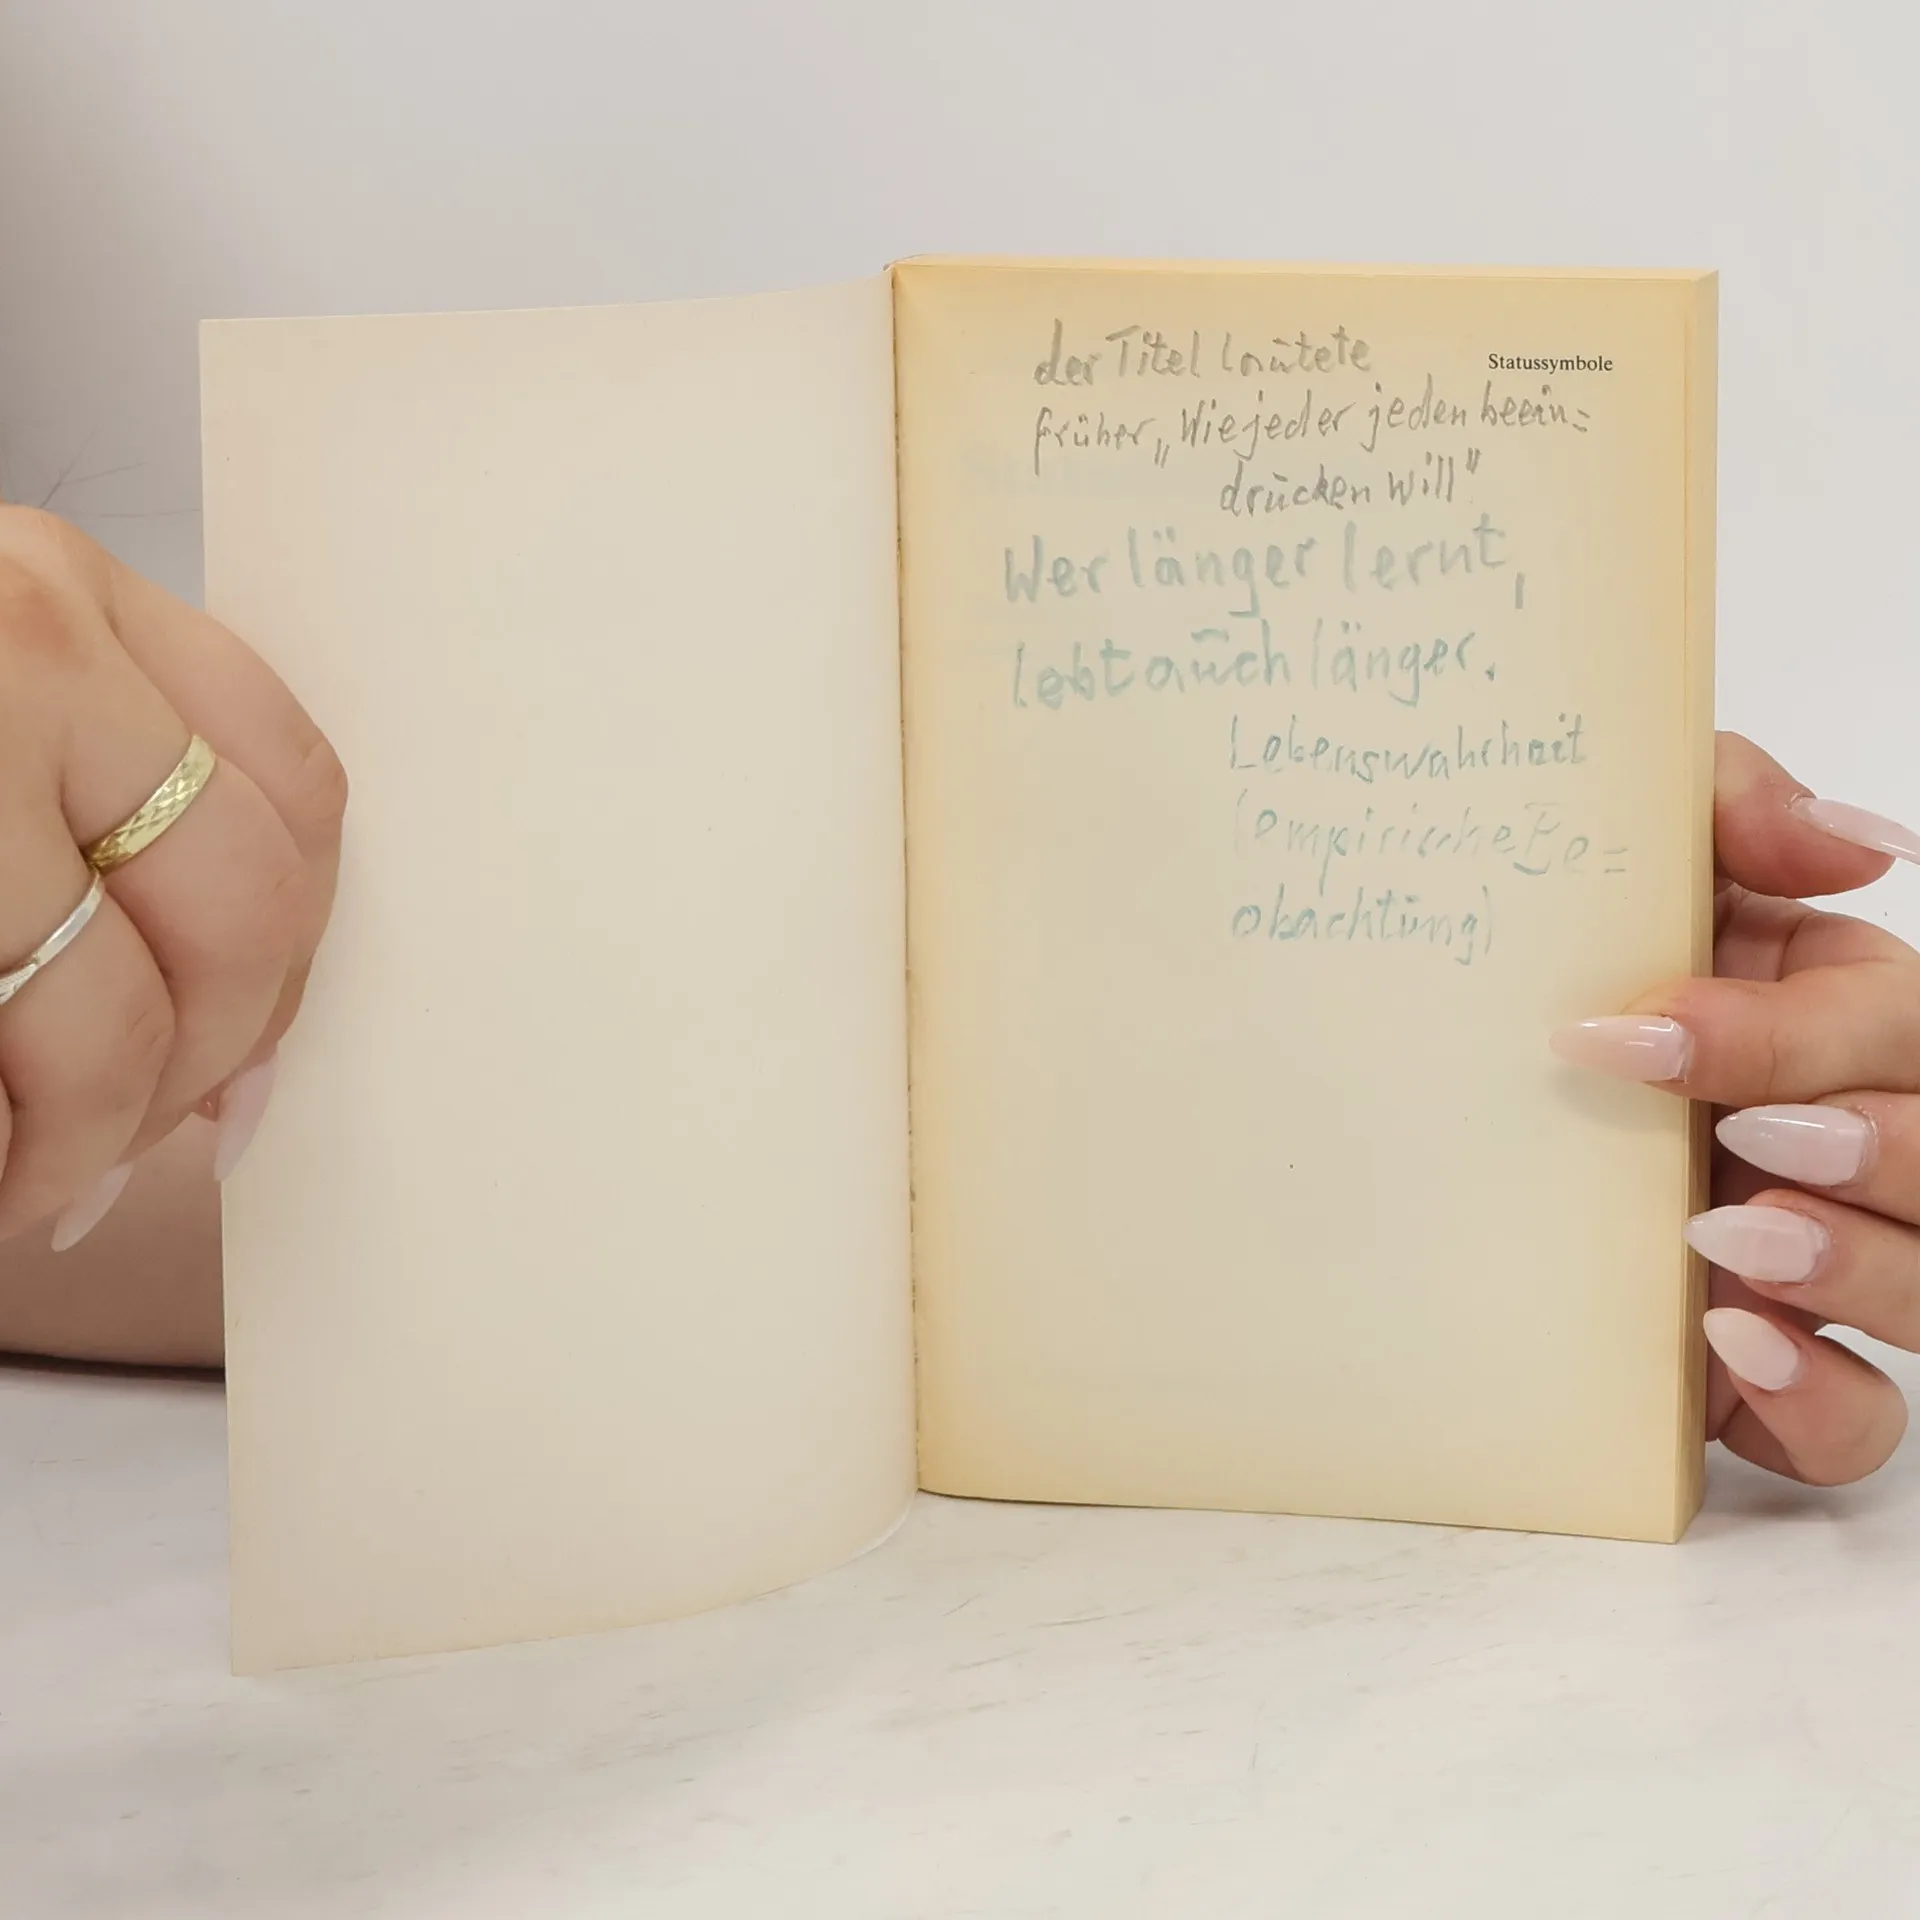 Statussymbole
der Titel lautete
früher „Wie jeder jeden beein=
drucken will"
Wer länger lernt,
lebt auch länger.
Lebenswahrheit
(empirische Be=
obachtung)